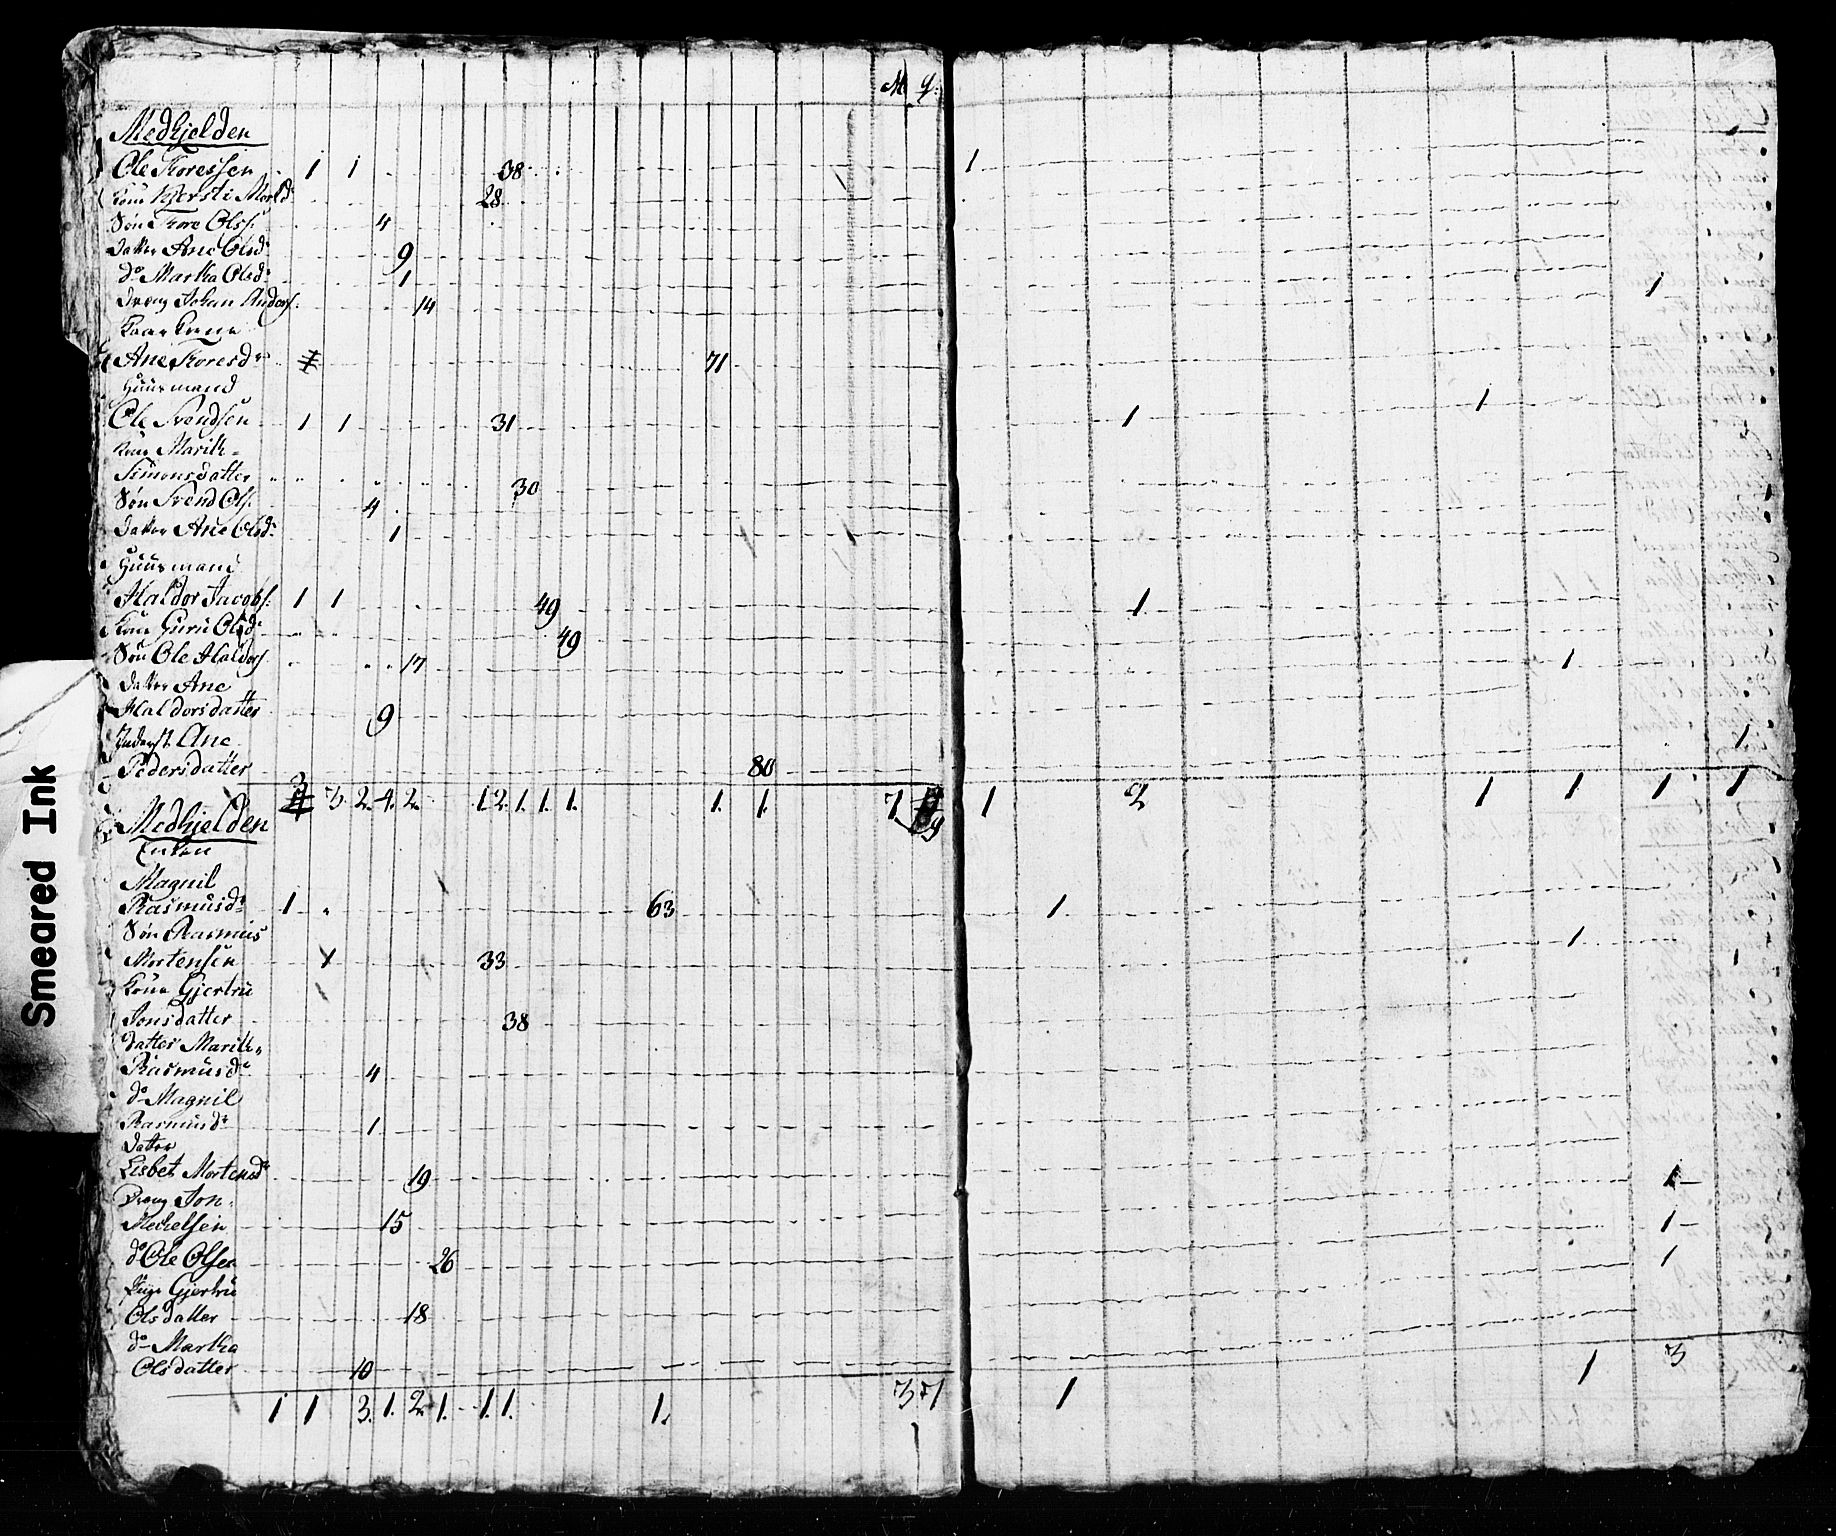 M Q:
Medhjelden
Ole Toressen 1 1 38 1
Kone Kjersti Morsd: 28
Søn Tore Olss: 4
Datter Ane Olsd: 9
do Martha Olsd: 1
Dreng Johan Anders: 14 1
Kaar Kone
Ane Toresdr 71
Huusmand
Ole Svendsen 1 1 31 1 1
Kone Marith
Simonsdatter 30
Søn Svend Ols: 4
Datter Ane Olsd: 1
Huusmand
Haldor Jacobs: 1 1 49 1
Kone Guru Olsd: 49
Søn Ole Haldors 17 1
Datter Ane
Haldorsdatter 9
Inderst Ane
Pedersdatter 80 1
3 3. 2. 4. 2. 1. 2. 1. 1. 1. 1. 1. 7 9 1 2 1 1 1 1
Medhjelden
Enken
Magnil
Rasmusdr 1 63 1
Søn Rasmus
Mortensen 33 1
Kone Gjertru
Jonsdatter 38
Datter Marith
Rasmusdr 4
do Magnil
Rasmusdr 1
Datter
Lisbet Mortensdr 19 1
Dreng Jon
Michelsen 15 1
do Ole Olsen 26 1
Pige Gjertru
Olsdatter 18
do Martha
Olsdatter 10
1 1 3. 1. 2. 1. 1. 1. 1. 3 7 1 1 3
Smeared Ink